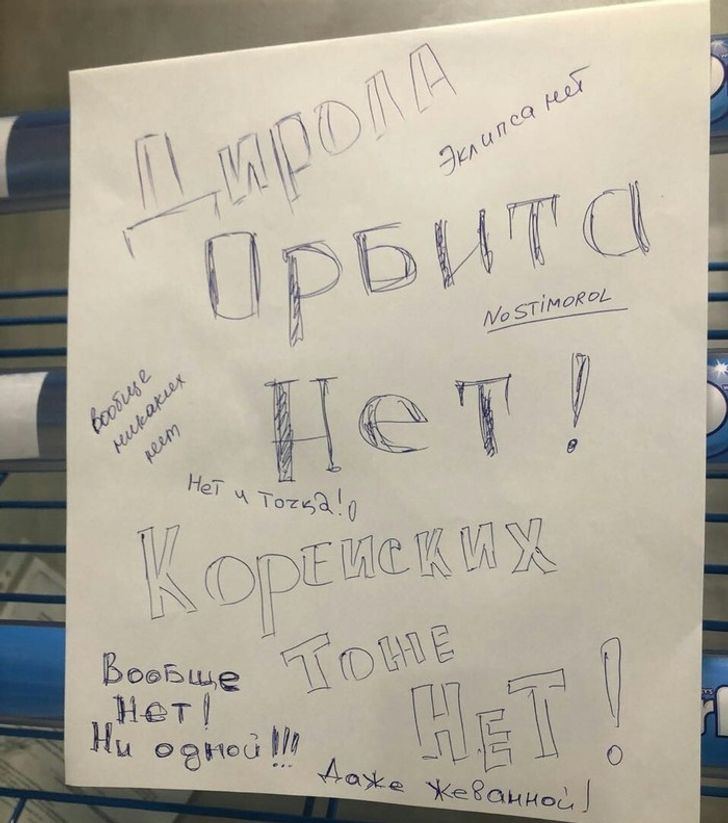 Дирола
Эклипса нет
Орбита
No STiMOROL
Нет!
вообще
никаких
нет
Нет и точка!
Корейских
Тоже
Нет!
Вообще
Нет!
Ни одной!!!
Даже жеванной!